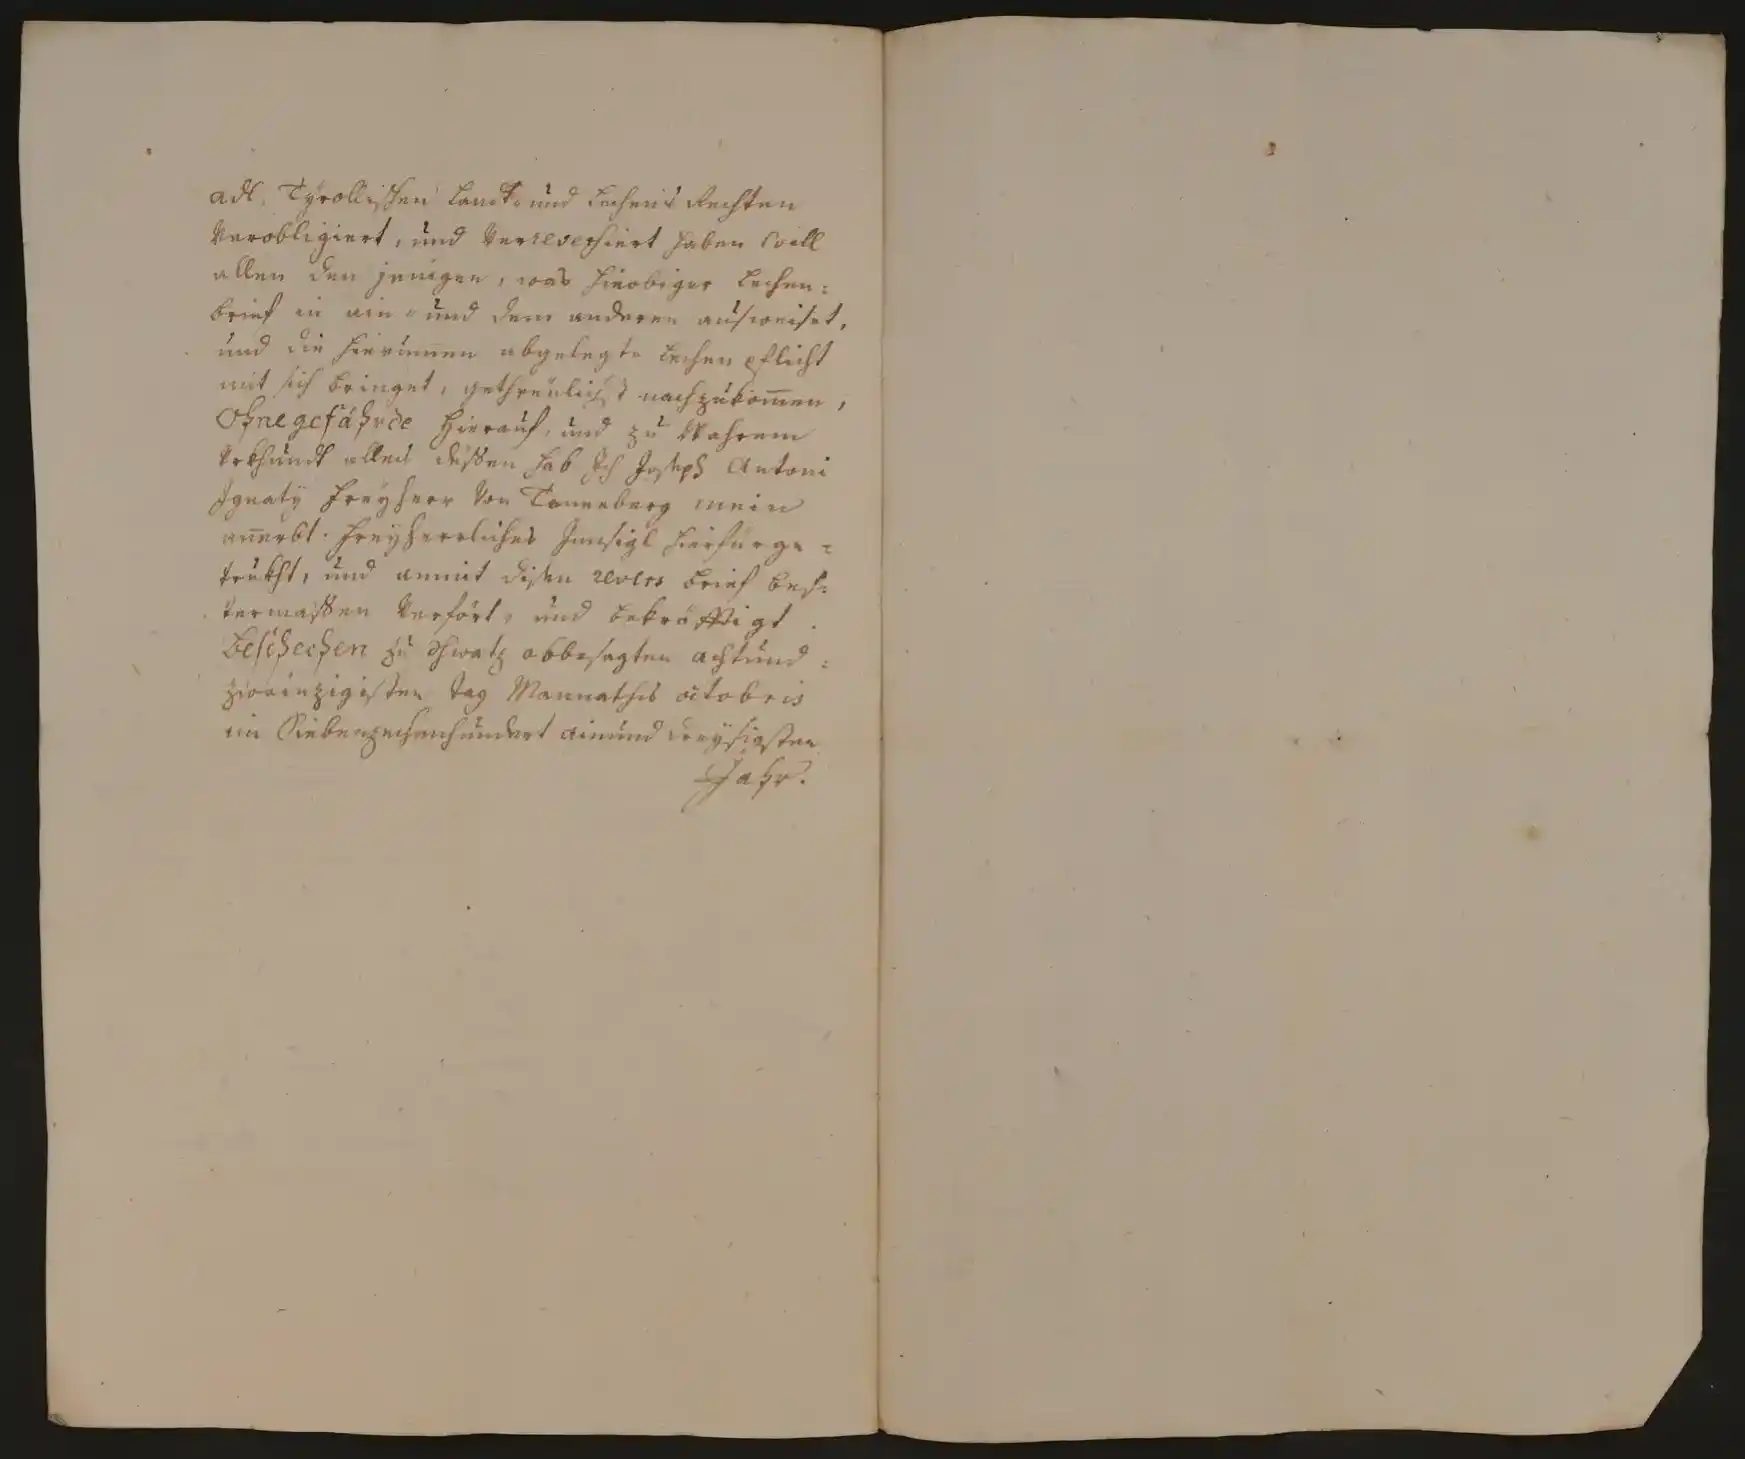 adl. Tyrollischen Landt- und Lechens Rechten
Verobligiert, und Verreversiert haben will
allen den jenigen, was hieobiger Lechen=
brief in ain- und dem anderen ausweiset,
und die hierinnen abgelegte Lechen pflicht
mit sich bringet, gethreulichist nachzukom̅en,
Ohne gefährde Hierauf, und zu Wahrem
Vrkhundt alles dessen hab Jch Joseph Antoni
Jgnatÿ Freyherr Von Tannenberg mein
an̅erbt. Freyherrliches Jnnsigl hierfürge=
trukht, und anmit disen revers brief bes=
termassen Verfört, und bekräfftigt
Beschechen zu Schwatz obbesagten acht und=
zwainzigisten tag Monnaths octobris
im Siebenzechenhundert ainund dreyssigsten
Jahr.